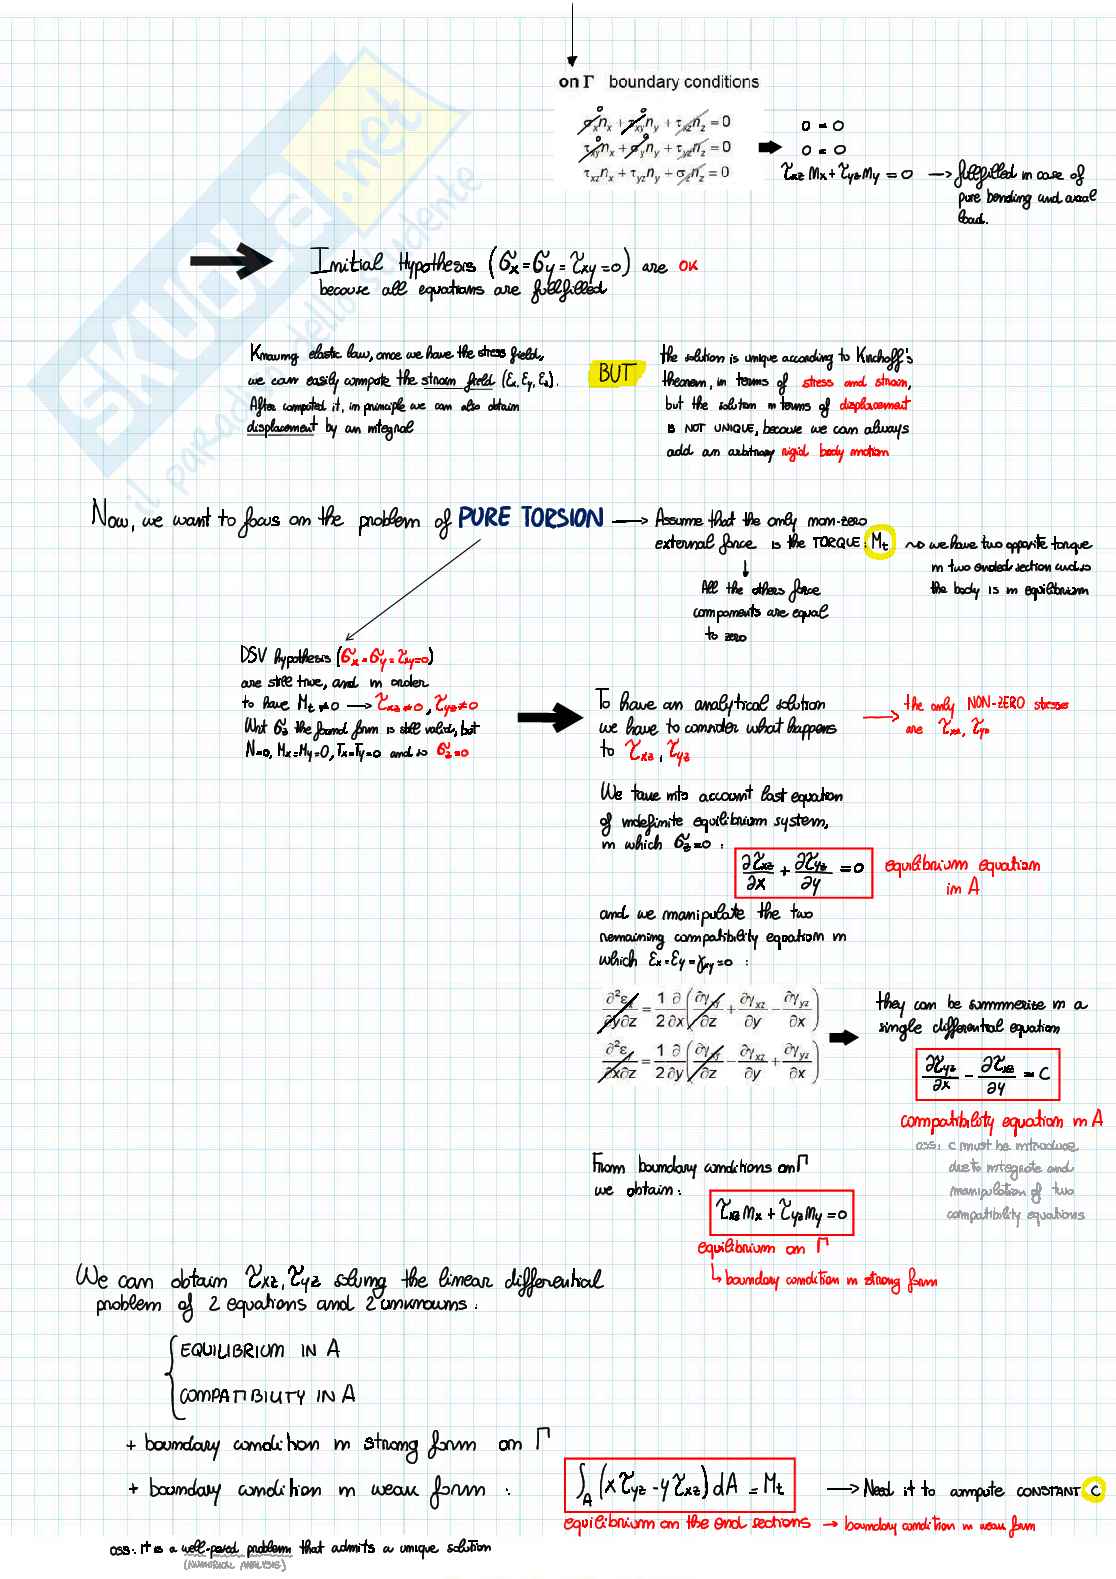 on Γ boundary conditions
σₓnₓ + τₓᵧnᵧ + τₓ_z n_z = 0
0 = 0
τₓᵧnₓ + σᵧnᵧ + τᵧ_z n_z = 0
0 = 0
τₓ_z nₓ + τᵧ_z nᵧ + σ_z n_z = 0
τxz nx + τyz ny = 0 → fullfilled in case of
pure bending and axial
load.
Initial Hypothesis (σx = σy = τxy = 0) are OK
because all equations are fullfilled
Knowing elastic law, once we have the stress field,
we can easily compute the strain field (εx, εy, εz).
After computed it, in principle we can also obtain
displacement by an integral
BUT
the solution is unique according to Kirchoff's
theorem, in terms of stress and strain,
but the solution in terms of displacement
is NOT UNIQUE, because we can always
add an arbitrary rigid body motion
Now, we want to focus on the problem of PURE TORSION
→ Assume that the only non-zero
external force is the TORQUE: Mt
~> we have two opposite torque
in two ended section and so
the body is in equilibrium
All the others force
components are equal
to zero
DSV hypothesis (σx = σy = τxy = 0)
are still true, and in order
to have Mt ≠ 0 → τxz ≠ 0, τyz ≠ 0
Wrt σz the found form is still valid, but
N=0, Mx=My=0, Tx=Ty=0 and so σz=0
To have an analytical solution
we have to consider what happens
to τxz, τyz
→ the only NON-ZERO stresses
are τxz, τyz
We take into account last equation
of indefinite equilibrium system,
in which σz=0 :
∂τxz/∂x + ∂τyz/∂y = 0
equilibrium equation
in A
and we manipulate the two
remaining compatibility equation in
which εx = εy = γxy = 0 :
∂²εx/∂y∂z = 1/2 ∂/∂x (∂γxy/∂z + ∂γxz/∂y − ∂γyz/∂x)
∂²εy/∂x∂z = 1/2 ∂/∂y (∂γxy/∂z − ∂γxz/∂y + ∂γyz/∂x)
they can be summerize in a
single differential equation
∂τyz/∂x − ∂τxz/∂y = C
compatibility equation in A
oss: c must be introduce
due to integrate and
manipulation of two
compatibility equations
From boundary conditions on Γ
we obtain:
τxz nx + τyz ny = 0
equilibrium on Γ
↳ boundary condition in strong form
We can obtain τxz, τyz solving the linear differential
problem of 2 equations and 2 unknowns :
EQUILIBRIUM IN A
COMPATIBILITY IN A
+ boundary condition in strong form on Γ
+ boundary condition in weak form :
∫A (x τyz − y τxz) dA = Mt
→ Need it to compute CONSTANT C
equilibrium on the end sections → boundary condition in weak form
oss: it is a well-posed problem that admits a unique solution
(NUMERICAL ANALYSIS)
SKUOLA.net
il paradiso dello studente